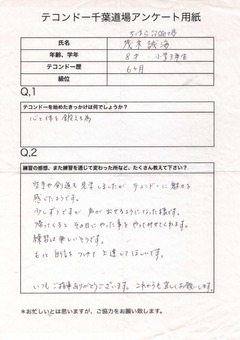 テコンドー千葉道場アンケート用紙
氏名
茂木 誠海
年齢、学年
8才 小学3年生
テコンドー歴
6ヶ月
級位
Q,1
テコンドーを始めたきっかけは何でしょうか?
心と体を鍛える為
Q,2
練習の感想、また練習を通じて変わった所など、たくさん教えて下さい?
空手や剣道も見学しましたが テコンドーに魅力を
感じたようです。
少しずつですが 声が出せるようになった様です。
帰ってくると その日にやった事を やってみせてくれます。
練習は楽しいそうです。
もっと自信をつけて 上達してほしいです。
いつもご指導ありがとうございます。これからも宜しくお願いします。
*お忙しいとは思いますが、ご協力をお願い致します。